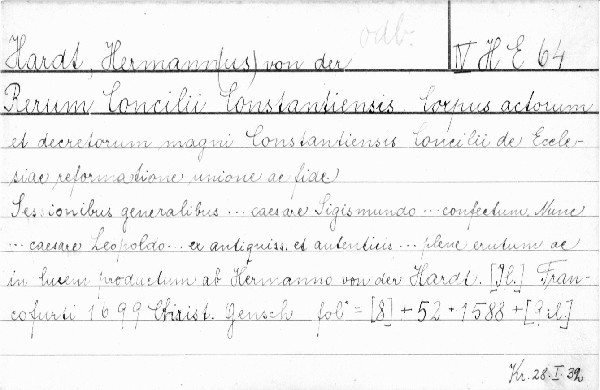 odb.
Hardt, Hermann(us) von der IV H E 64
Rerum Concilii Constantiensis Corpus actorum
et decretorum magni Constantiensis Concilii de Eccle-
siae reformatione unione ac fide
Sessionibus generalibus ... caesare Sigismundo ... confectum. Nunc
... caesare Leopoldo ... ex antiquiss. et autenticis ... plene erutum ac
in lucem productum ab Hermanno von der Hardt. [Il.] Fran-
cofurti 1699 Christ. Gensch fol° = [8] + 52 + 1588 +
Kr. 28. I. 32